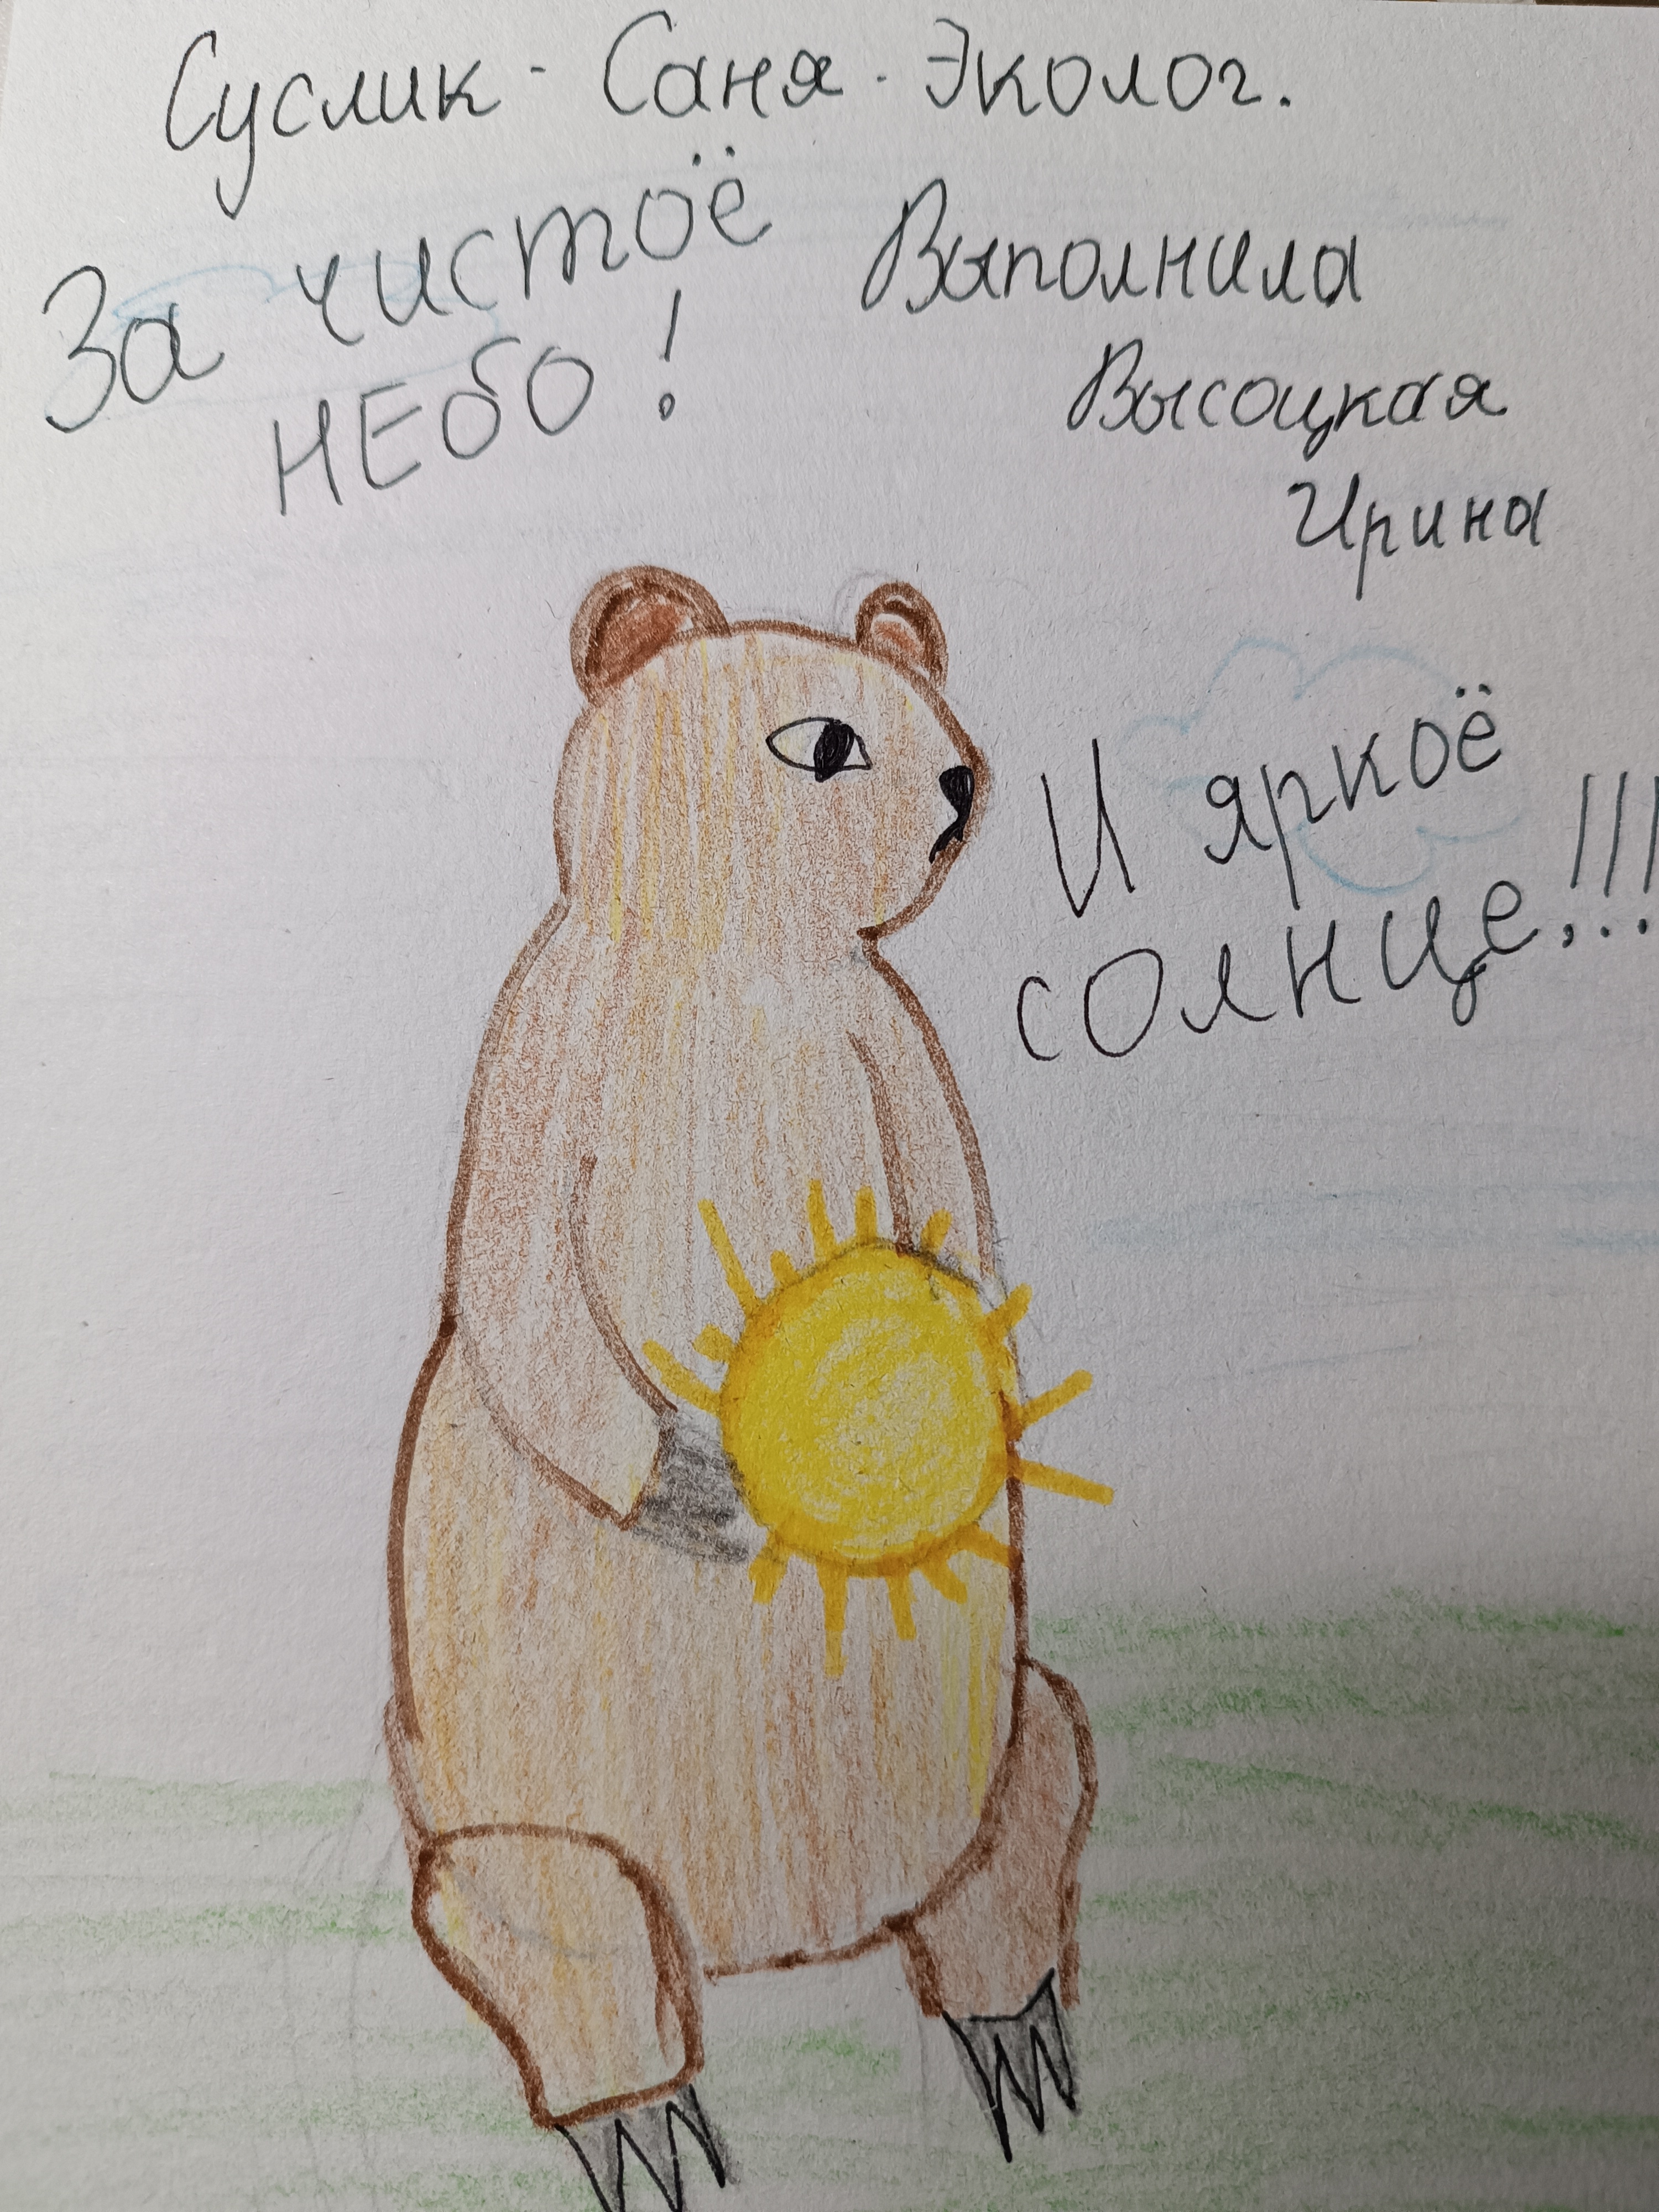 Суслик - Саня - Эколог.
За чистоё
НЕбО!
Выполнила
Высоцкая
Ирина
И яркоё
солнце!!!